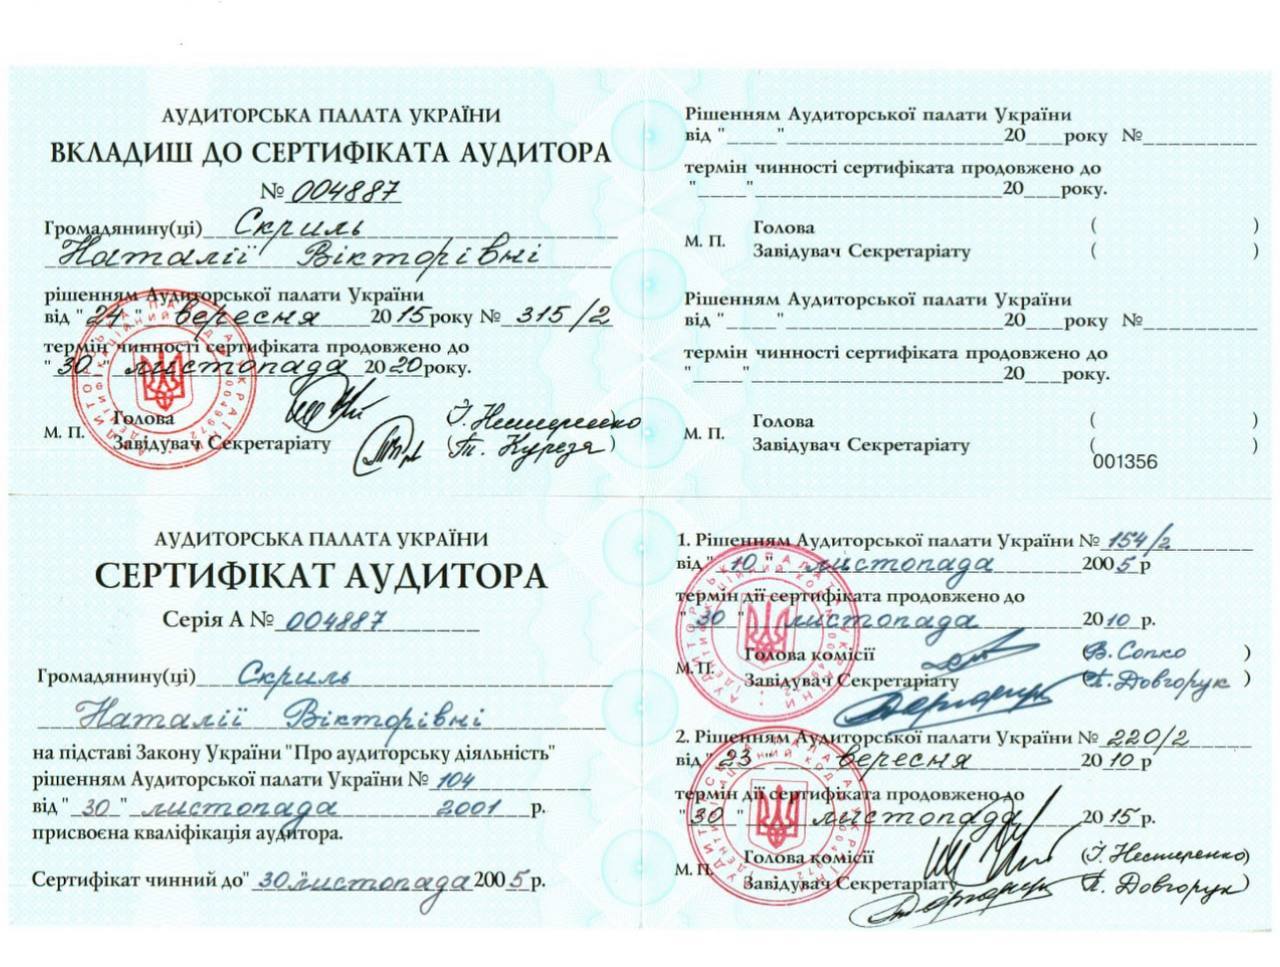 АУДИТОРСЬКА ПАЛАТА УКРАЇНИ
ВКЛАДИШ ДО СЕРТИФІКАТА АУДИТОРА
№ 004887
Громадянину(ці) Скриль
Наталії Вікторівні
рішенням Аудиторської палати України
від "24" вересня 2015 року № 315/2
термін чинності сертифіката продовжено до
"30" листопада 2020 року.
Голова (І. Нестеренко)
М. П.
Завідувач Секретаріату (Т. Курєзя)
Рішенням Аудиторської палати України
від "____"____________________20____року №__________
термін чинності сертифіката продовжено до
"____"____________________20___року.
Голова ( )
М. П.
Завідувач Секретаріату ( )
Рішенням Аудиторської палати України
від "____"____________________20____року №__________
термін чинності сертифіката продовжено до
"____"____________________20___року.
Голова ( )
М. П.
Завідувач Секретаріату ( )
001356
АУДИТОРСЬКА ПАЛАТА УКРАЇНИ
СЕРТИФІКАТ АУДИТОРА
Серія А № 004887
Громадянину(ці) Скриль
Наталії Вікторівні
на підставі Закону України "Про аудиторську діяльність"
рішенням Аудиторської палати України № 104
від "30" листопада 2001 р.
присвоєна кваліфікація аудитора.
Сертифікат чинний до "30" листопада 2005 р.
1. Рішенням Аудиторської палати України № 154/2
від "10" листопада 2005 р
термін дії сертифіката продовжено до
"30" листопада 2010 р.
Голова комісії (В. Сопко)
М. П.
Завідувач Секретаріату (А. Довгорук)
2. Рішенням Аудиторської палати України № 220/2
від "23" вересня 2010 р
термін дії сертифіката продовжено до
"30" листопада 2015 р.
Голова комісії (І. Нестеренко)
М. П.
Завідувач Секретаріату (А. Довгорук)